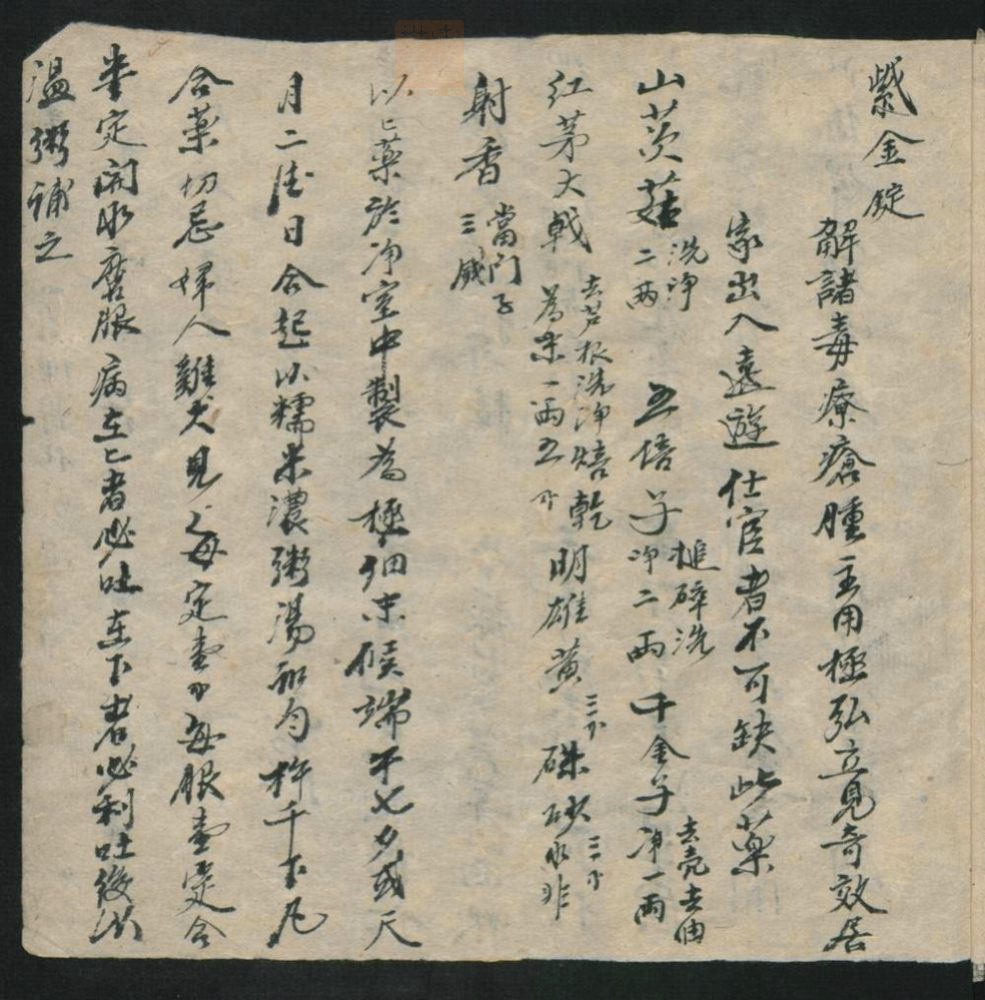 紫金錠
解諸毒療瘡腫主用極弘立見奇效居
家出入遠遊仕宦者不可缺此藥
山茨菇洗淨二两 五倍子槌碎洗净二兩 千金子去壳去油净一兩
紅芽大戟去芦根洗淨焙乾為末一兩五 明雄黃三 硃砂水非三
射香當門子三錢
以上藥於净室中製為極细末候端午七夕或天
月二德日合起以糯米濃粥湯和勻杵千下凡
合藥切忌婦人雞犬見之每定壹每服壹定合
半定開水磨服病在上者必吐在下者必利吐後以
温粥補之